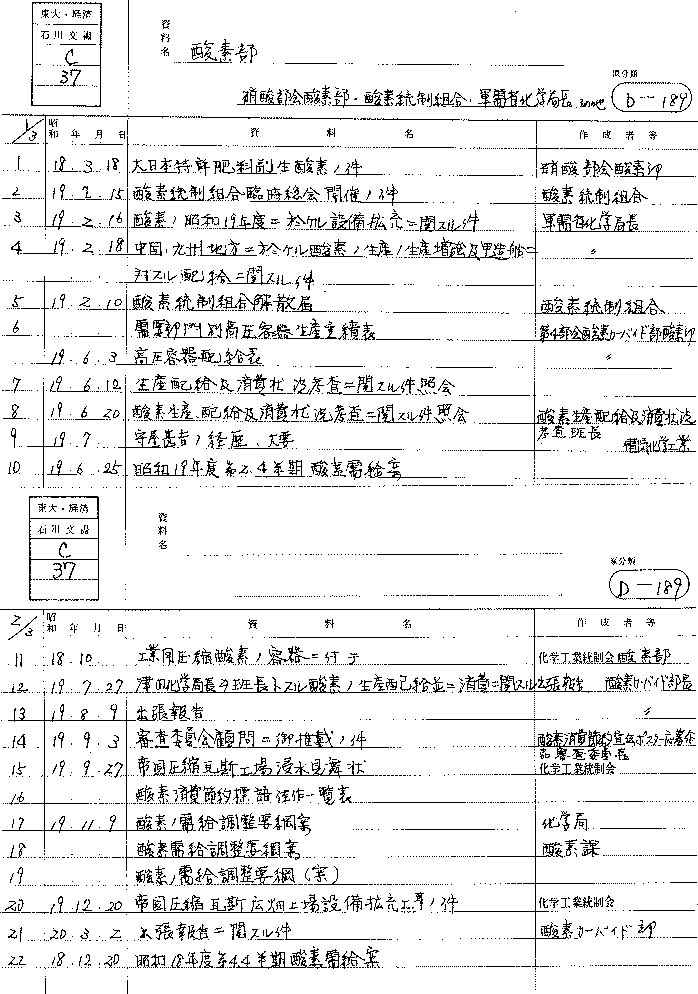 東大・経済
石川文書
C
37
資料名
酸素部
硝酸部会酸素部・酸素統制組合・軍需省化学局長 その他
原分類
D-189
1/3
昭和 年 月 日
資 料 名
作 成 者 等
1 18.3.18 大日本特許肥料副生酸素ノ件 硝酸部会酸素部
2 19.2.15 酸素統制組合臨時総会開催ノ件 酸素統制組合
3 19.2.16 酸素ノ昭和19年度ニ於ケル設備拡充ニ関スル件 軍需省化学局長
4 19.2.18 中国、九州地方ニ於ケル酸素ノ生産ノ生産増強及甲造船ニ 〃
対スル配給ニ関スル件
5 19.2.10 酸素統制組合解散届 酸素統制組合
6 需要部門別高圧容器生産実績表 第4部会酸素カーバイド部酸素部
19.6.3 高圧容器配給表 〃
7 19.6.12 生産配給及消費状況考査ニ関スル件照会
8 19.6.20 酸素生産、配給及消費状況考査ニ関スル件照会 酸素生産配給及消費状況
考査班長
9 19.7. 守屋 ノ経歴、大要 化学工業
10 19.6.25 昭和19年度第2.4半期酸素需給案
東大・経済
石川文書
C
37
資料名
原分類
D-189
2/3
昭和 年 月 日
資 料 名
作 成 者 等
11 18.10 工業用圧縮酸素ノ容器ニ付テ 化学工業統制会酸素部
12 19.7.27 津田化学局長ヲ班長トスル酸素ノ生産配給並ニ消費ニ関スル出張報告 酸素カーバイド部長
13 19.8.9 出張報告 〃
14 19.9.3 審査委員会顧問ニ御推戴ノ件 酸素消費節約宣伝ポスター応募作
品審査委員長
15 19.9.27 帝国圧縮瓦斯工場浸水見舞状 化学工業統制会
16 酸素消費節約標語佳作一覧表
17 19.11.9 酸素ノ需給調整要綱案 化学局
18 酸素需給調整要綱案 酸素課
19 酸素ノ需給調整要綱(案)
20 19.12.20 帝国圧縮瓦斯広畑工場設備拡充工事ノ件 化学工業統制会
21 20.3.2 出張報告ニ関スル件 酸素カーバイド部
22 18.12.20 昭和18年度第4.4半期酸素需給案